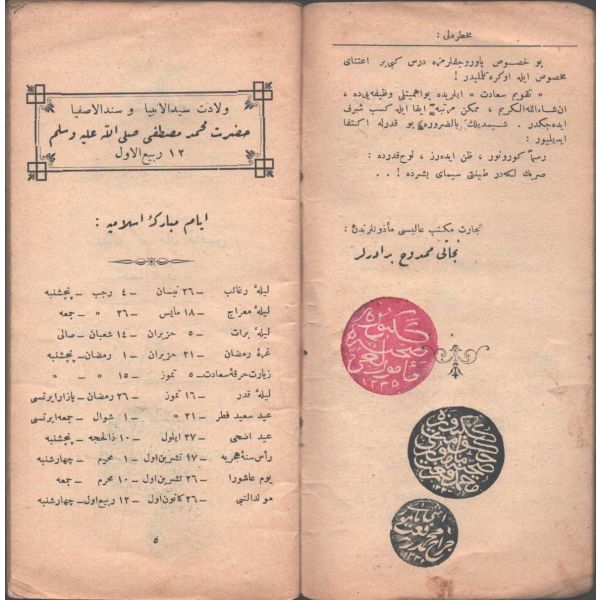 مخطره‌لی :
بو خصوص یاوروجقلرمزه درس کبی بر اعتنای
مخصوص ایله اوکره تلملیدر !
« تقویم سعادت » ایلریده بواهمیتلی وظیفه‌یی ده ،
ان‌شاءالله‌الکریم ، ممکن مرتبه ایفا ایله کسب شرف
ایده‌جکدر . شیمدیلك بالضروره بو قدرله اکتفا
ایدیلیور :
رسماً کورونور ، ظن ایده‌رز ، لوح‌قدرده :
صربك لکه‌در طینتی سیمای بشرده ! . .
تجارت مکتب عالیسی مأذونلرندن :
نجاتی ممدوح برادرلر
۱۳۳۵
ولادت سیدالانبیا و سندالاصفیا
حضرت محمد مصطفی صلی الله علیه وسلم
۱۲ ربیع الاول
ایام مبارکهٔ اسلامیه :
لیلهٔ رغائب – ۲۶ نیسان – ۴ رجب – پنجشنبه
لیلهٔ معراج – ۱۸ مایس – ۲۶ » – جمعه
لیلهٔ برات – ۵ حزیران – ۱۴ شعبان – صالی
غرهٔ رمضان – ۲۱ حزیران – ۱ رمضان – پنجشنبه
زیارت خرقهٔ سعادت – ۵ تموز – ۱۵ » – »
لیلهٔ قدر – ۱۶ تموز – ۲۶ رمضان – بازارایرتسی
عید سعید فطر – ۲۱ » – ۱ شوال – جمعه‌ایرتسی
عید اضحی – ۲۷ ایلول – ۱۰ ذالحجه – پنجشنبه
رأس سنهٔ هجریه – ۱۷ تشرین اول – ۱ محرم – چهارشنبه
یوم عاشورا – ۲۶ تشرین اول – ۱۰ محرم – جمعه
مولد النبی – ۲۶ کانون اول – ۱۲ ربیع اول – چهارشنبه
۵